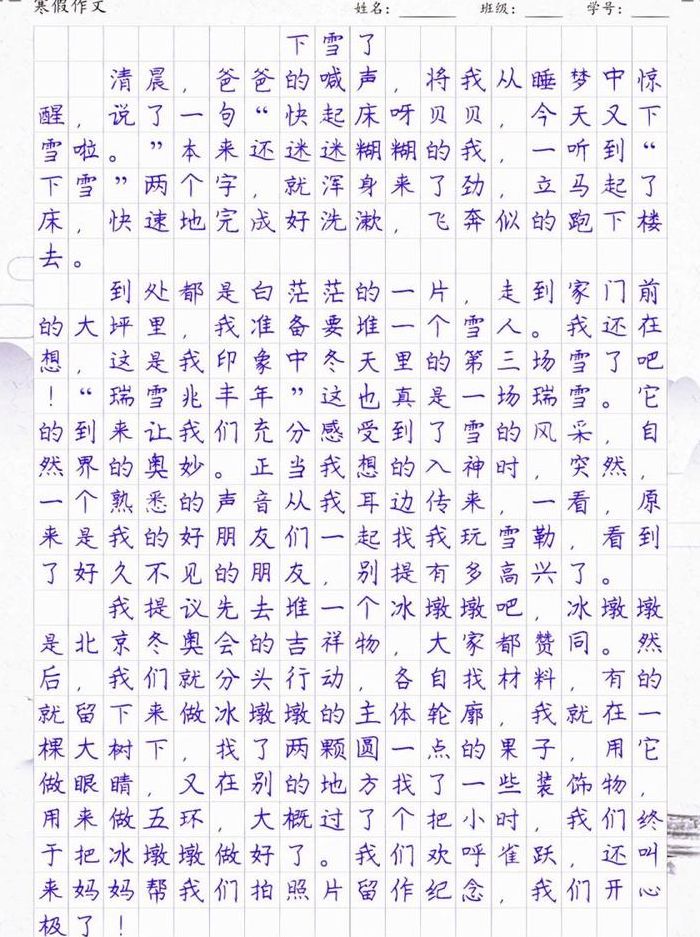 寒假作文 姓名：______ 班级：____ 学号：____
下雪了
清晨，爸爸的喊声，将我从睡梦中惊
醒，说了一句“快起床呀贝贝，今天又下
雪啦。”本来还迷迷糊糊的我，一听到“
下雪”两个字，就浑身来了劲，立马起了
床，快速地完成好洗漱，飞奔似的跑下楼
去。
到处都是白茫茫的一片，走到家门前
的大坪里，我准备要堆一个雪人。我还在
想，这是我印象中冬天里的第三场雪了吧
！“瑞雪兆丰年”这也真是一场瑞雪。它
的到来让我们充分感受到了雪的风采，自
然界的奥妙。正当我想的入神时，突然，
一个熟悉的声音从我耳边传来，一看，原
来是我的好朋友们一起找我玩雪勒，看到
了好久不见的朋友，别提有多高兴了。
我提议先去堆一个冰墩墩吧，冰墩墩
是北京冬奥会的吉祥物，大家都赞同。然
后，我们就分头行动，各自找材料，有的
就留下来做冰墩墩的主体轮廓，我就在一
棵大树下，找了两颗圆一点的果子，用它
做眼睛，又在别的地方找了一些装饰物，
用来做五环，大概过了个把小时，我们终
于把冰墩墩做好了。我们欢呼雀跃，还叫
来妈妈帮我们拍照片留作纪念，我们开心
极了！